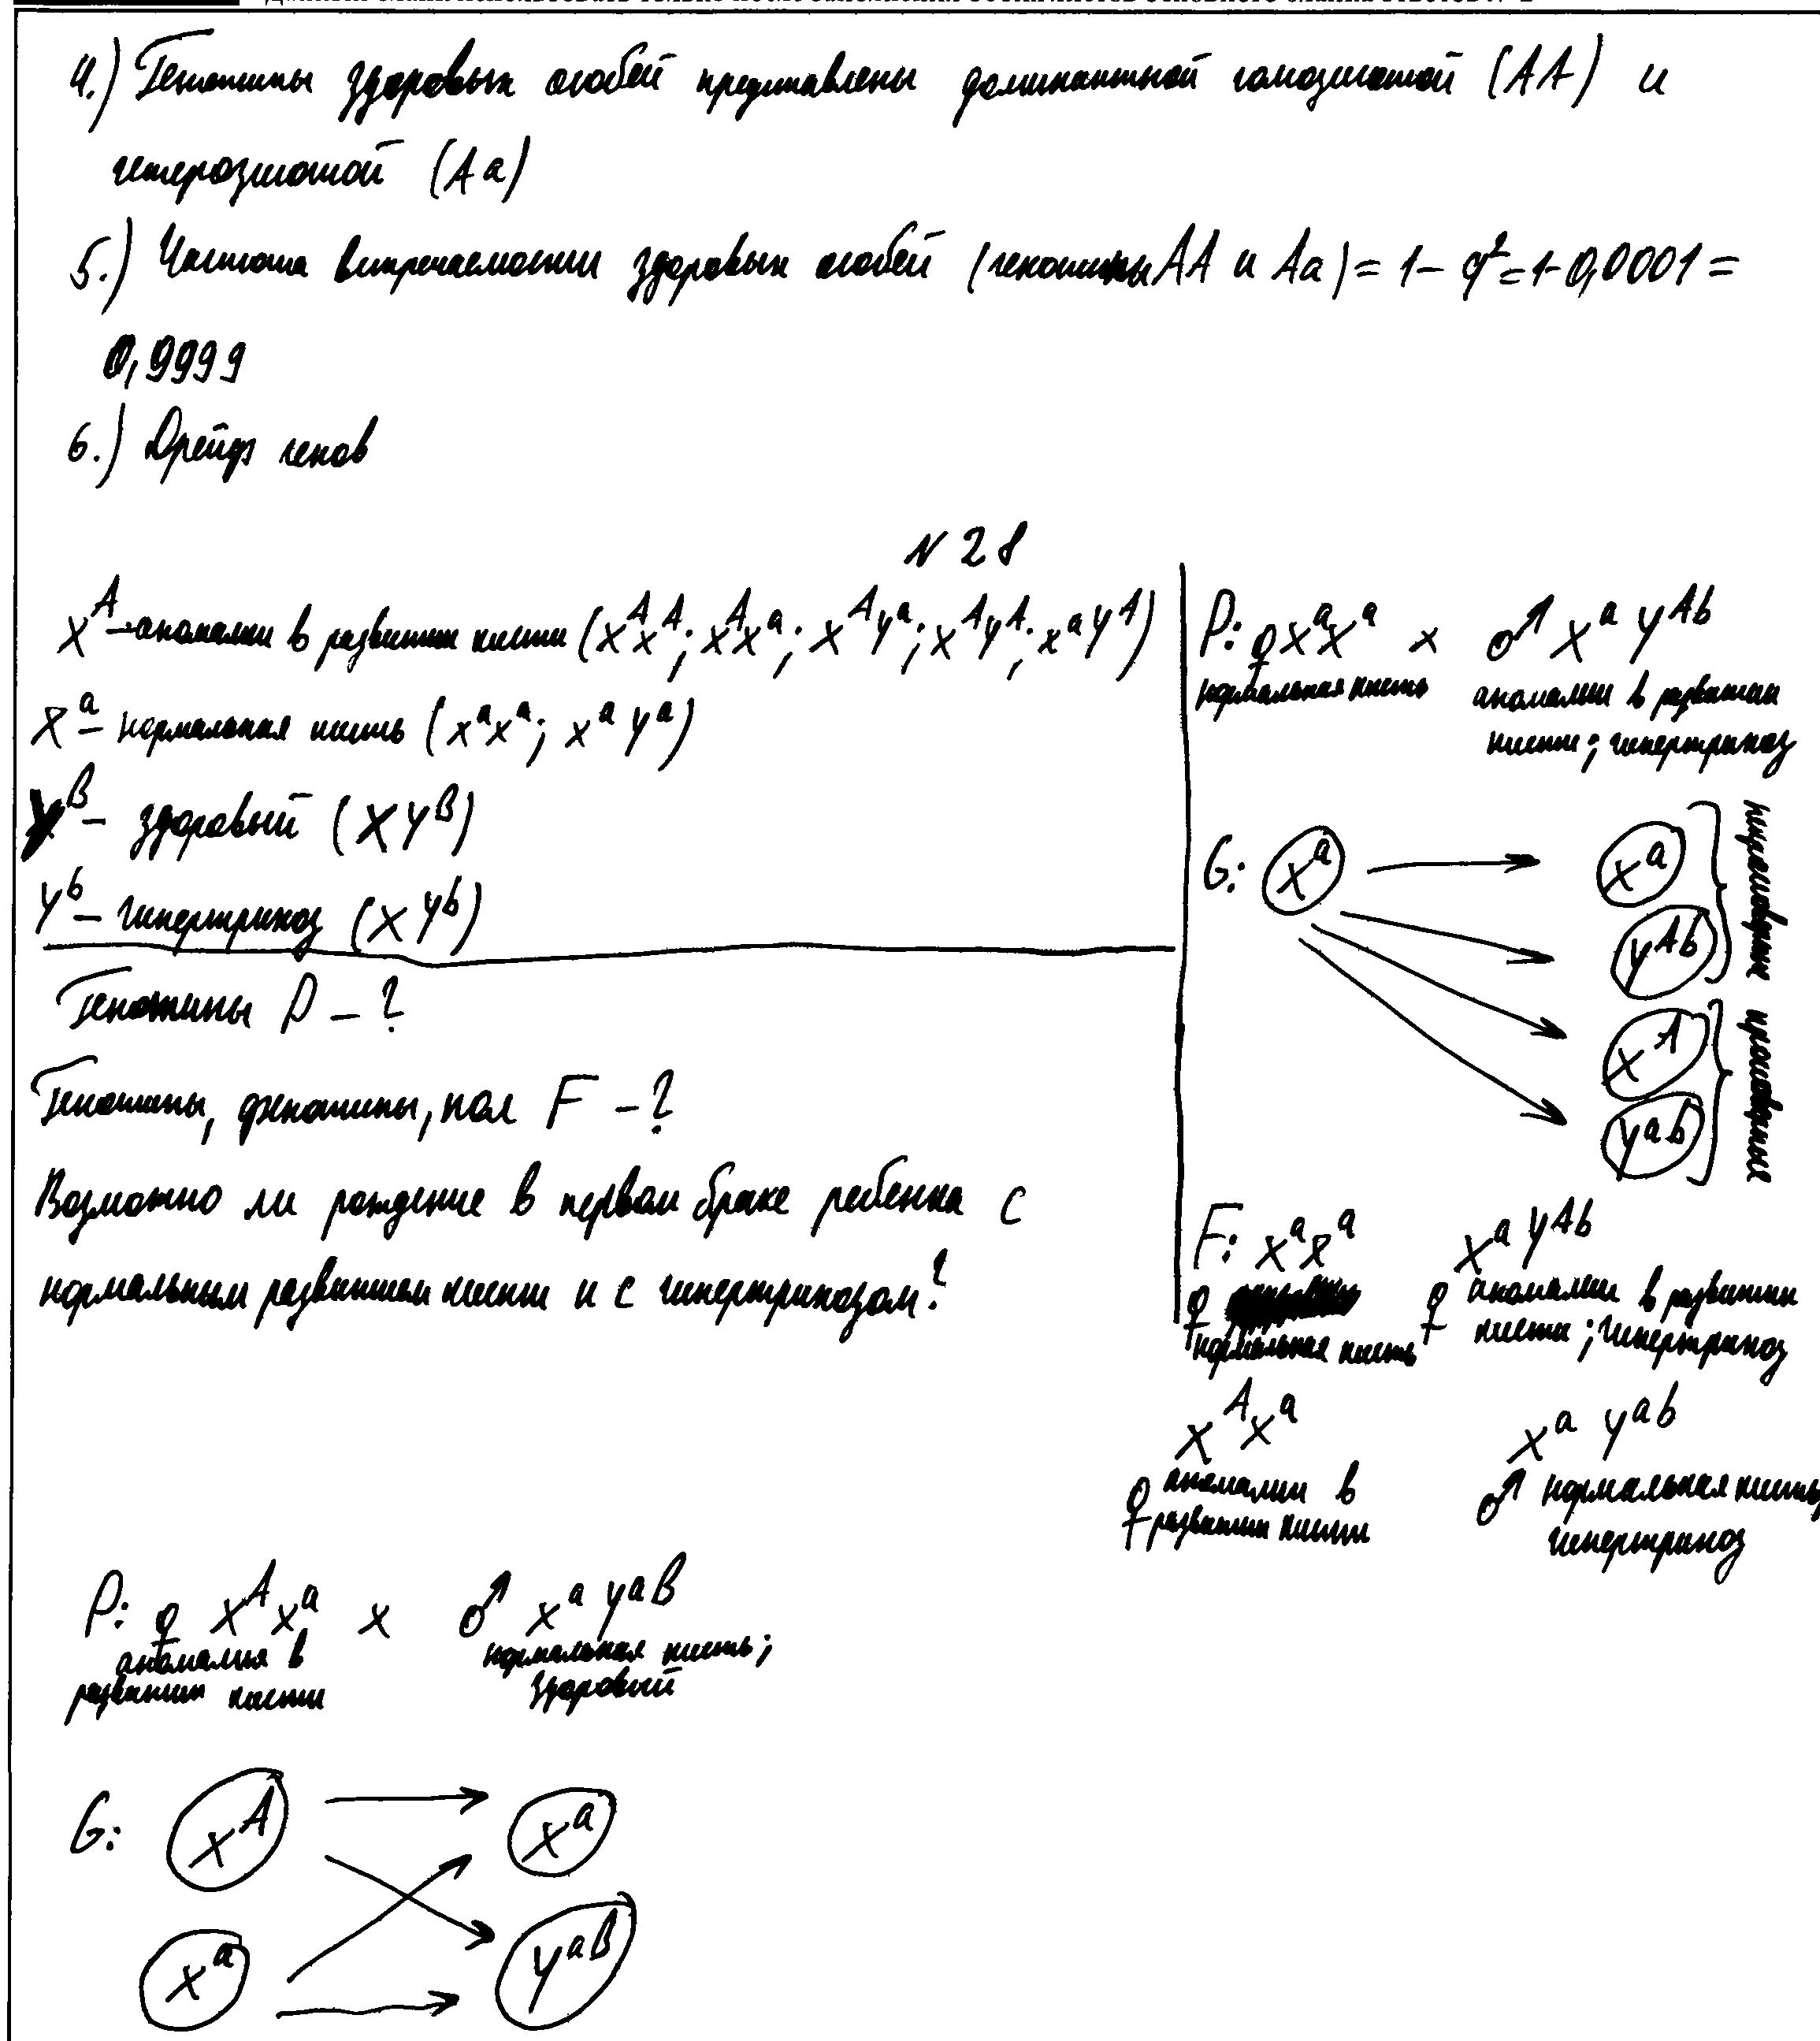 4.) Генотипы здоровых особей представлены доминантной гомозиготой (AA) и
гетерозиготой (Aa)
5.) Частота встречаемости здоровых особей (генотипы AA и Aa) = 1 - q² = 1 - 0,0001 =
0,9999
6.) Дрейф генов
N 28
X^A - аномалии в развитии кисти (X^A X^A; X^A X^a; X^A Y^a; X^A Y^A; X^a Y^A)
X^a - нормальная кисть (X^a X^a; X^a Y^a)
Y^B - здоровый (X Y^B)
Y^b - гипертрихоз (X Y^b)
Генотипы P - ?
Генотипы, фенотипы, пол F - ?
Возможно ли рождение в первом браке ребенка с
нормальным развитием кисти и с гипертрихозом?
P: ♀ X^a X^a × ♂ X^a Y^Ab
нормальная кисть аномалии в развитии
кисти; гипертрихоз
G: X^a → X^a
Y^Ab
некроссоверные
X^A
Y^ab
кроссоверные
F: X^a X^a X^a Y^Ab
♀ нормальная кисть ♀ аномалии в развитии
кисти; гипертрихоз
X^A X^a X^a Y^ab
♀ аномалии в ♂ нормальная кисть;
развитии кисти гипертрихоз
P: ♀ X^A X^a × ♂ X^a Y^aB
аномалия в нормальная кисть;
развитии кисти здоровый
G: X^A X^a
X^a Y^aB